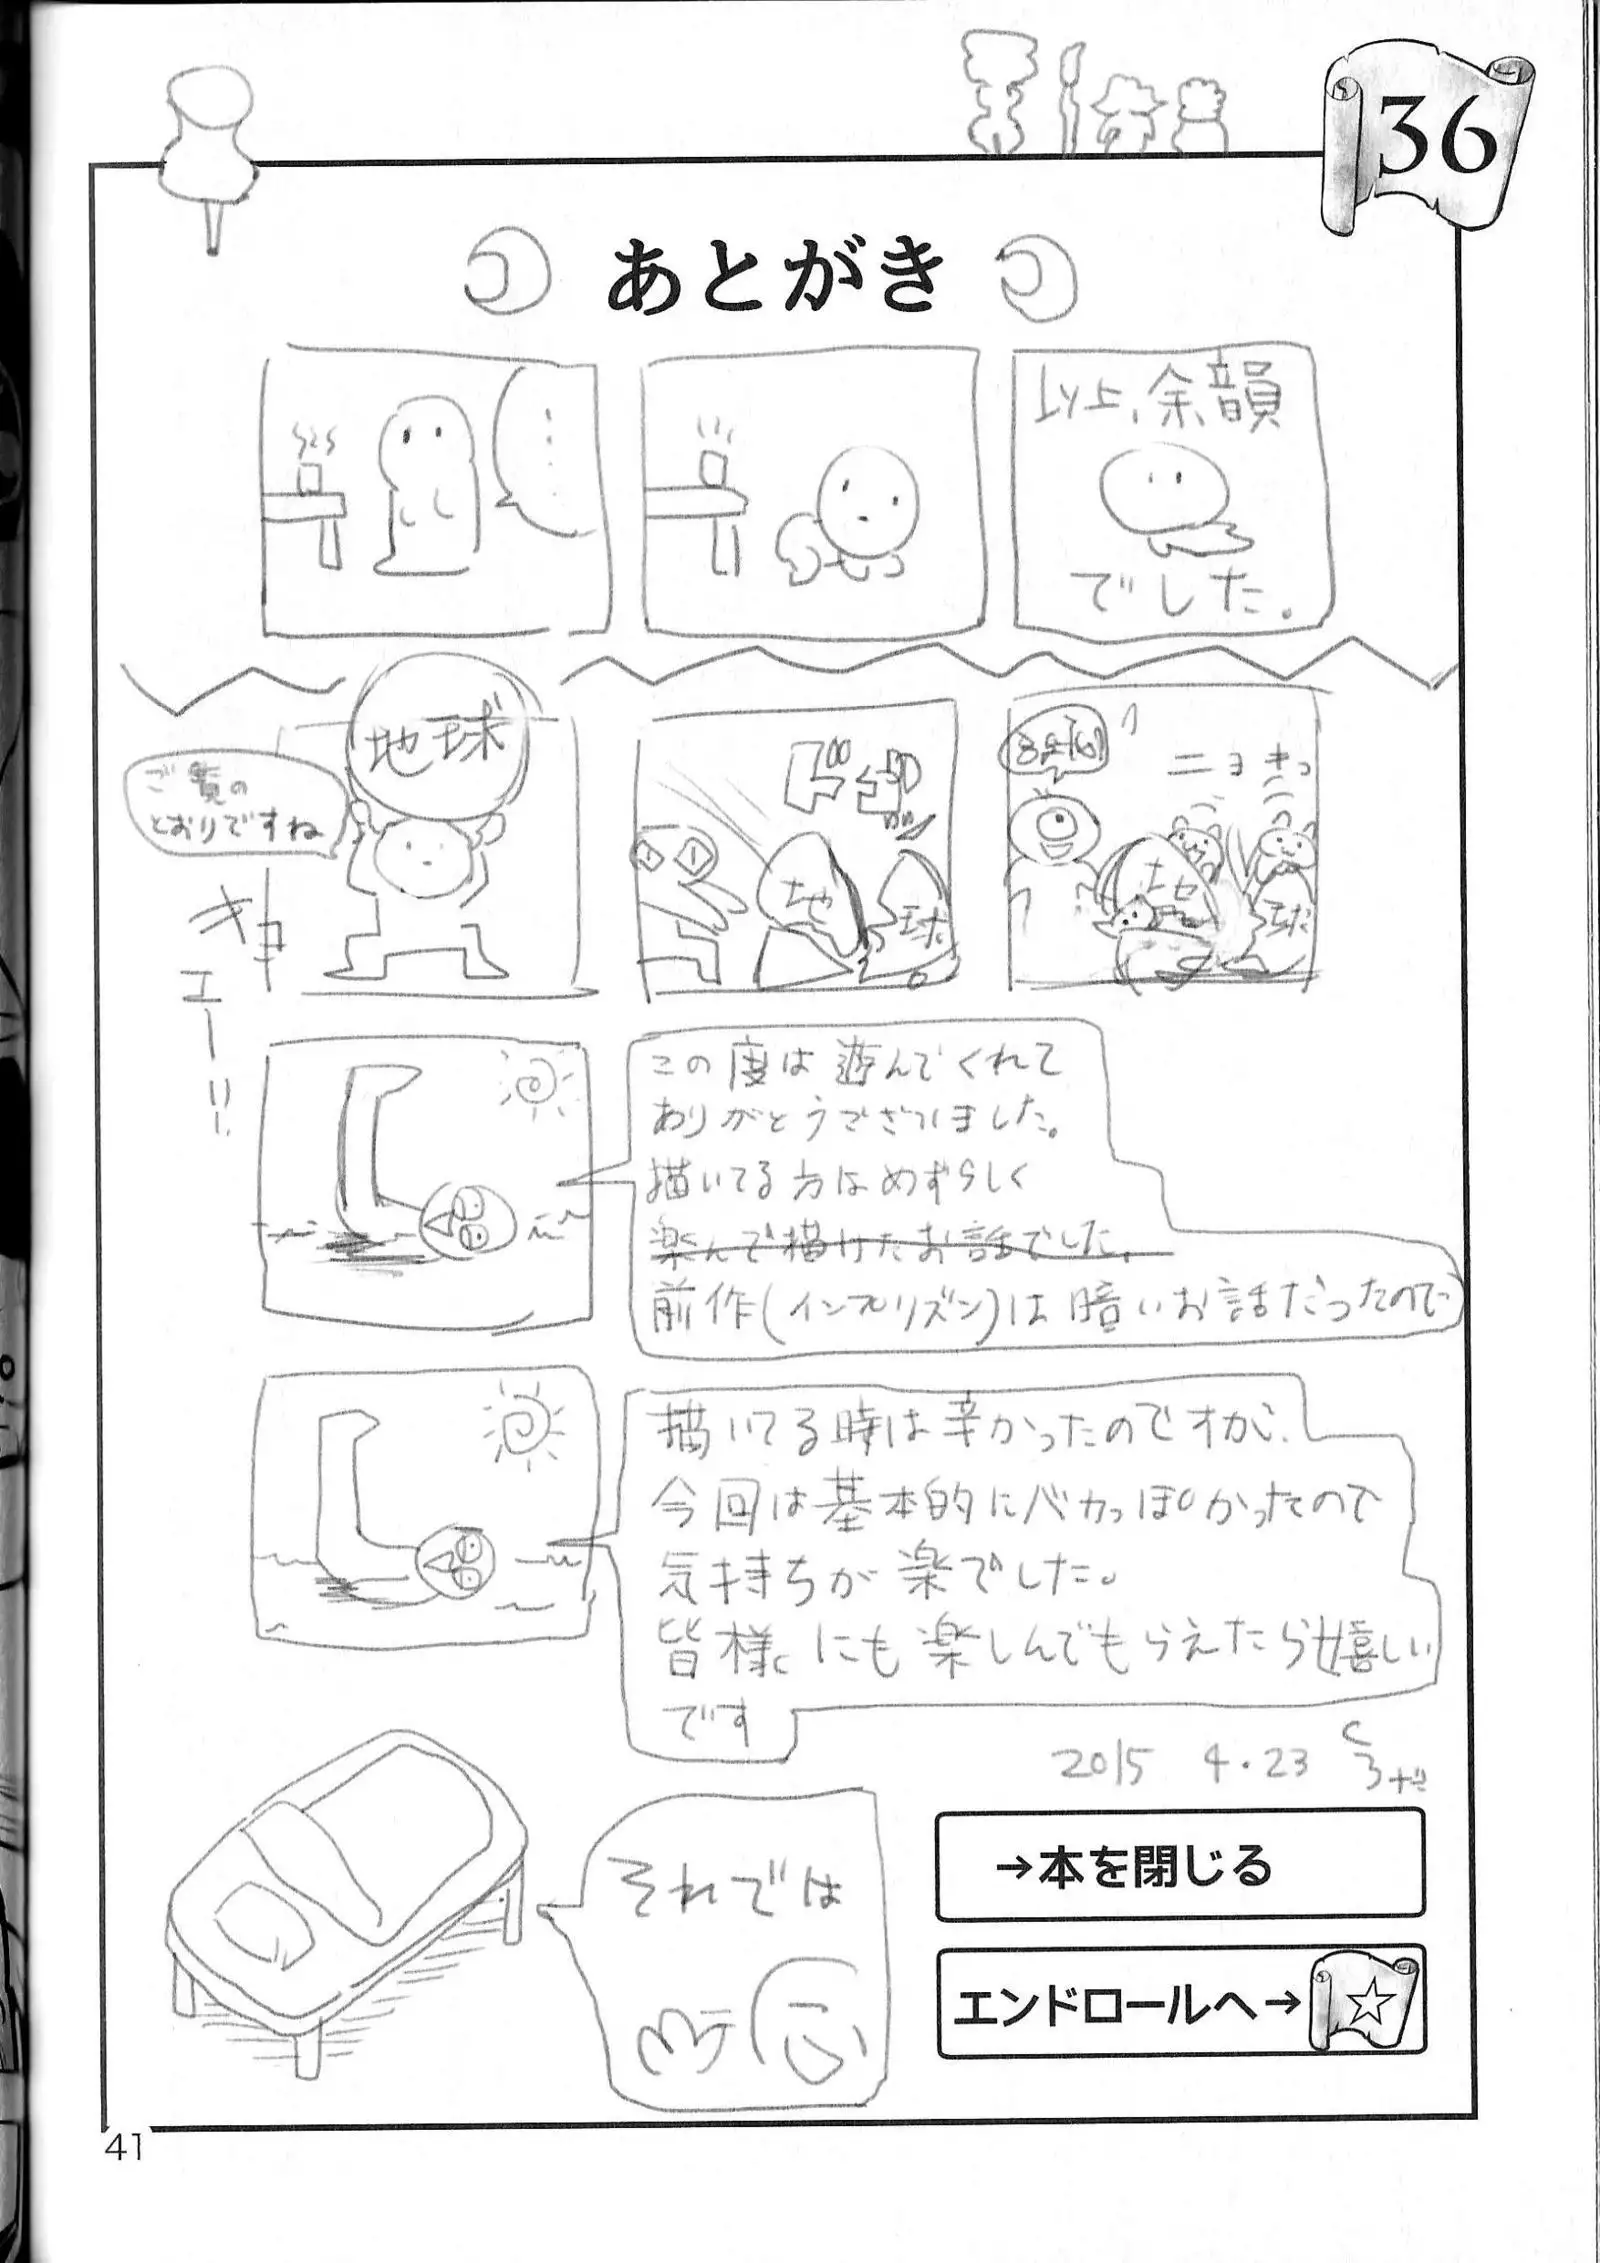 36
あとがき
以上、余韻
でした。
地球
ご覧の
とおりですね
地
球
ニョキっ
地
球
この度は遊んでくれて
ありがとうございました。
描いてる方はめずらしく
楽んで描けたお話でした。
前作(インプリズン)は暗いお話だったので
描いてる時は辛かったのですが、
今回は基本的にバカっぽかったので
気持ちが楽でした。
皆様にも楽しんでもらえたら嬉しい
です
2015 4.23
それでは
→本を閉じる
エンドロールへ→
41